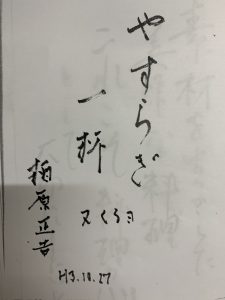 やすらぎ
一杯
又くるヨ
柏原正吉
H3.10.27